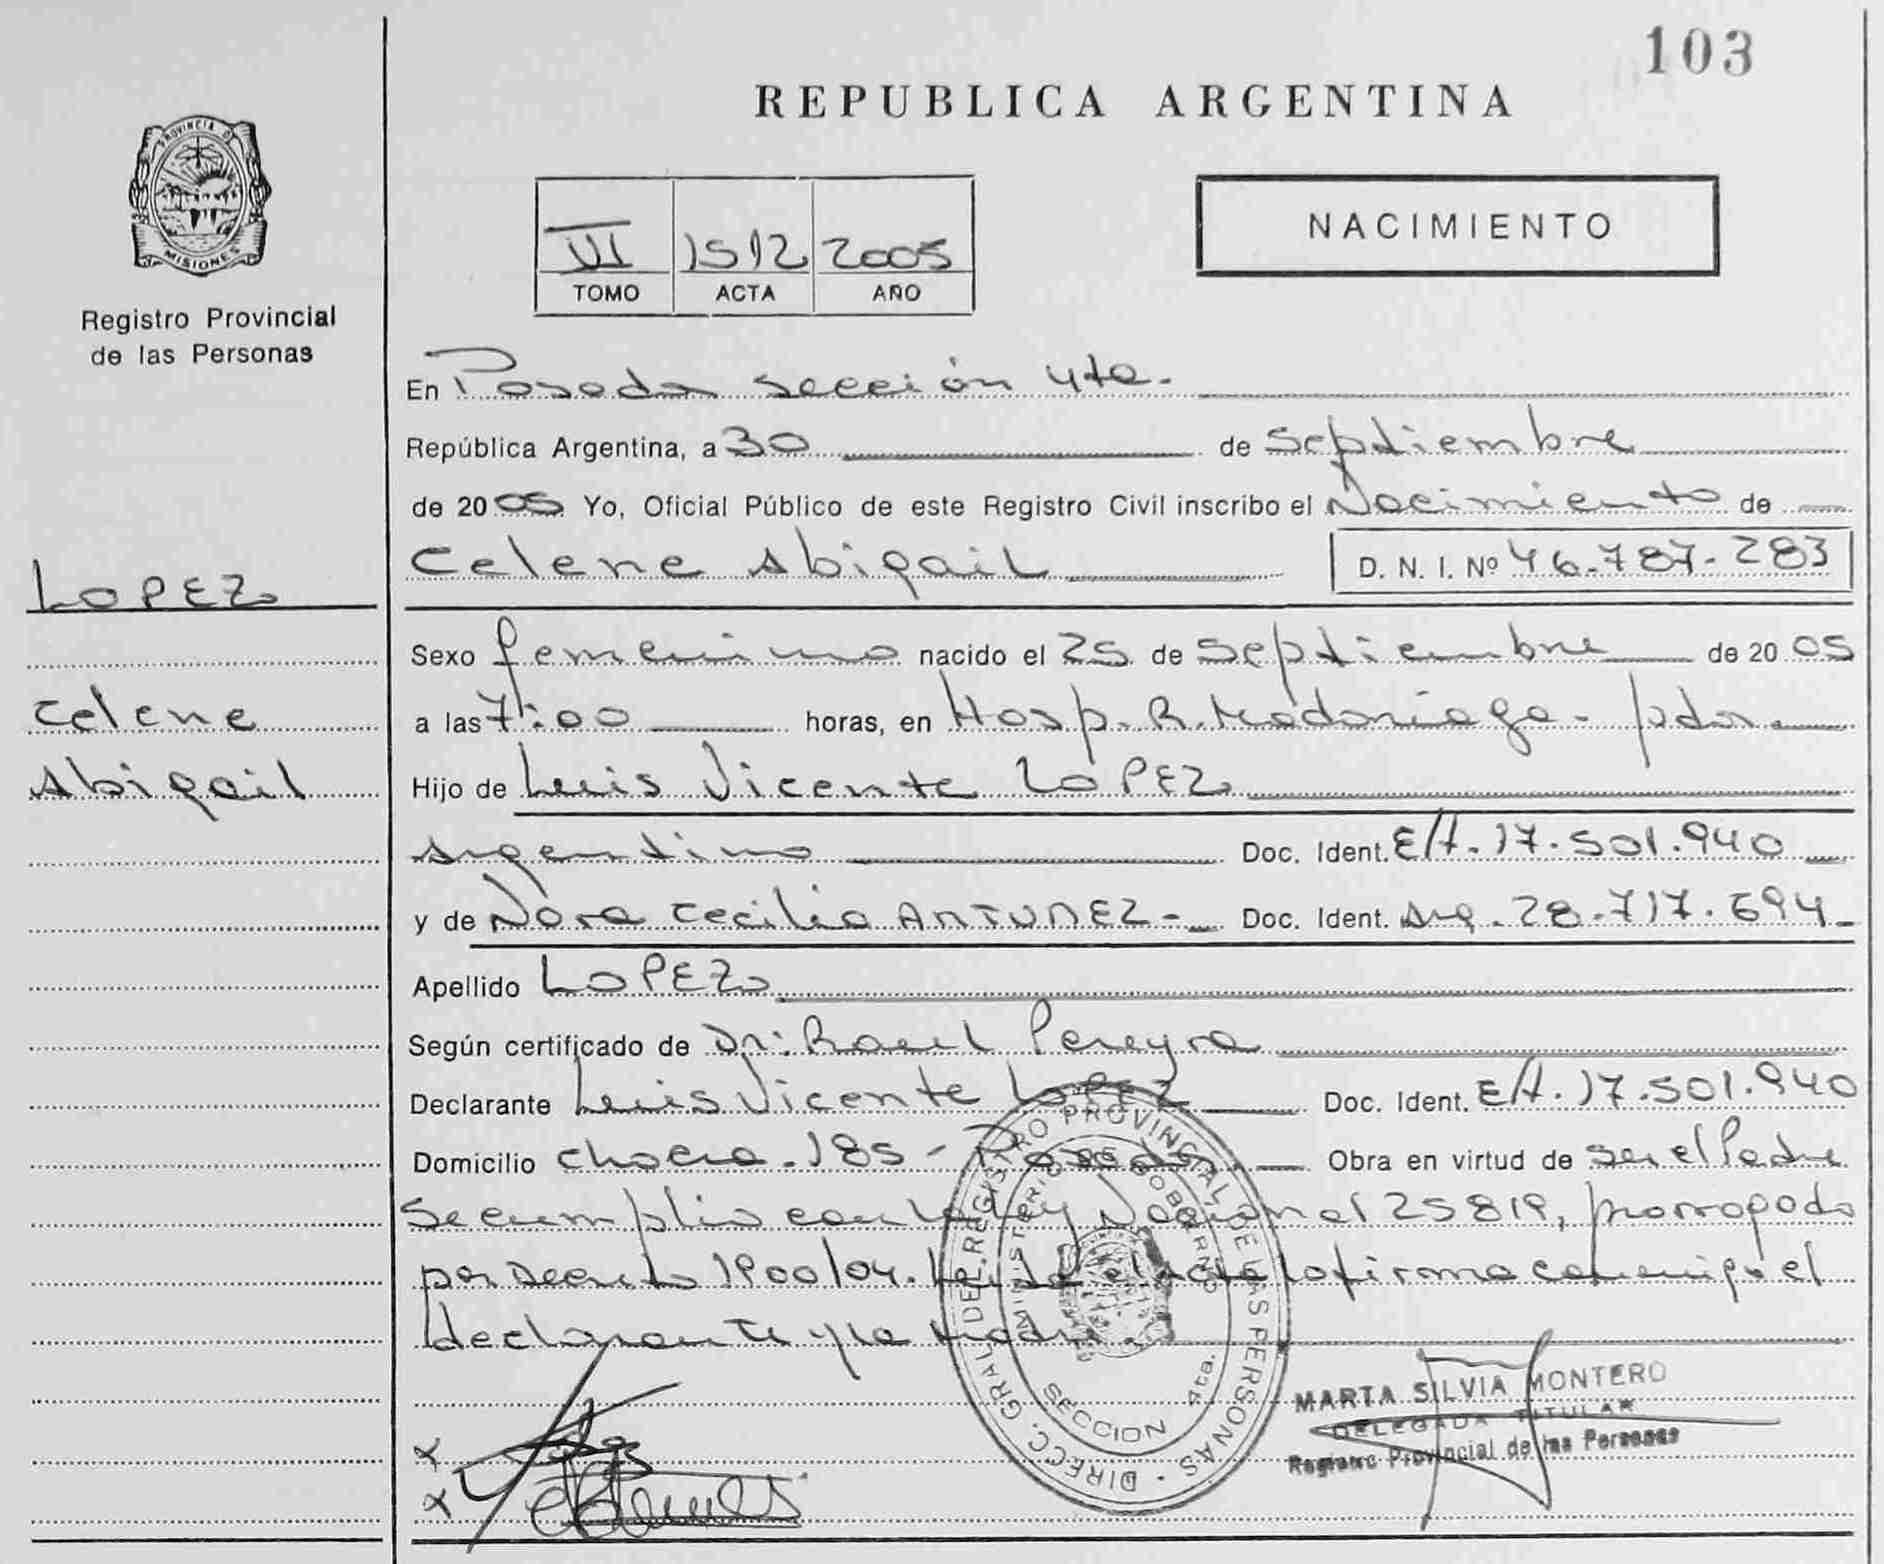 103
REPUBLICA ARGENTINA
PROVINCIA DE
MISIONES
Registro Provincial
de las Personas
VI 1512 2005
TOMO ACTA AÑO
NACIMIENTO
LOPEZ
Celene
Abigail
En Posadas sección 4ta.
República Argentina, a 30 de Septiembre
de 2005 Yo, Oficial Público de este Registro Civil inscribo el Nacimiento de
Celene Abigail D. N. I. Nº 46.787.283
Sexo femenino nacido el 25 de Septiembre de 2005
a las 7:00 horas, en Hosp. R. Madariaga - pdas.
Hijo de Luis Vicente LOPEZ
Argentino Doc. Ident. E/t. 17.501.940
y de Nora Cecilia ANTUNEZ - Doc. Ident. Arg. 28.717.694 -
Apellido LOPEZ
Según certificado de Dr: Raul Pereyra
Declarante Luis Vicente LOPEZ Doc. Ident. E/t. 17.501.940
Domicilio chacra. 185 - Posadas. Obra en virtud de ser el Padre
Se cumplio con la Ley Nacional 25819, prorrogado
por Decreto 1900/04. Leida el acta la firma conmigo el
declarante y la Madre.
DIRECC. GRAL. DEL REGISTRO PROVINCIAL DE LAS PERSONAS
MINISTERIO DE GOBIERNO
SECCION 4ta.
MARTA SILVIA MONTERO
DELEGADA TITULAR
Registro Provincial de las Personas
x
x